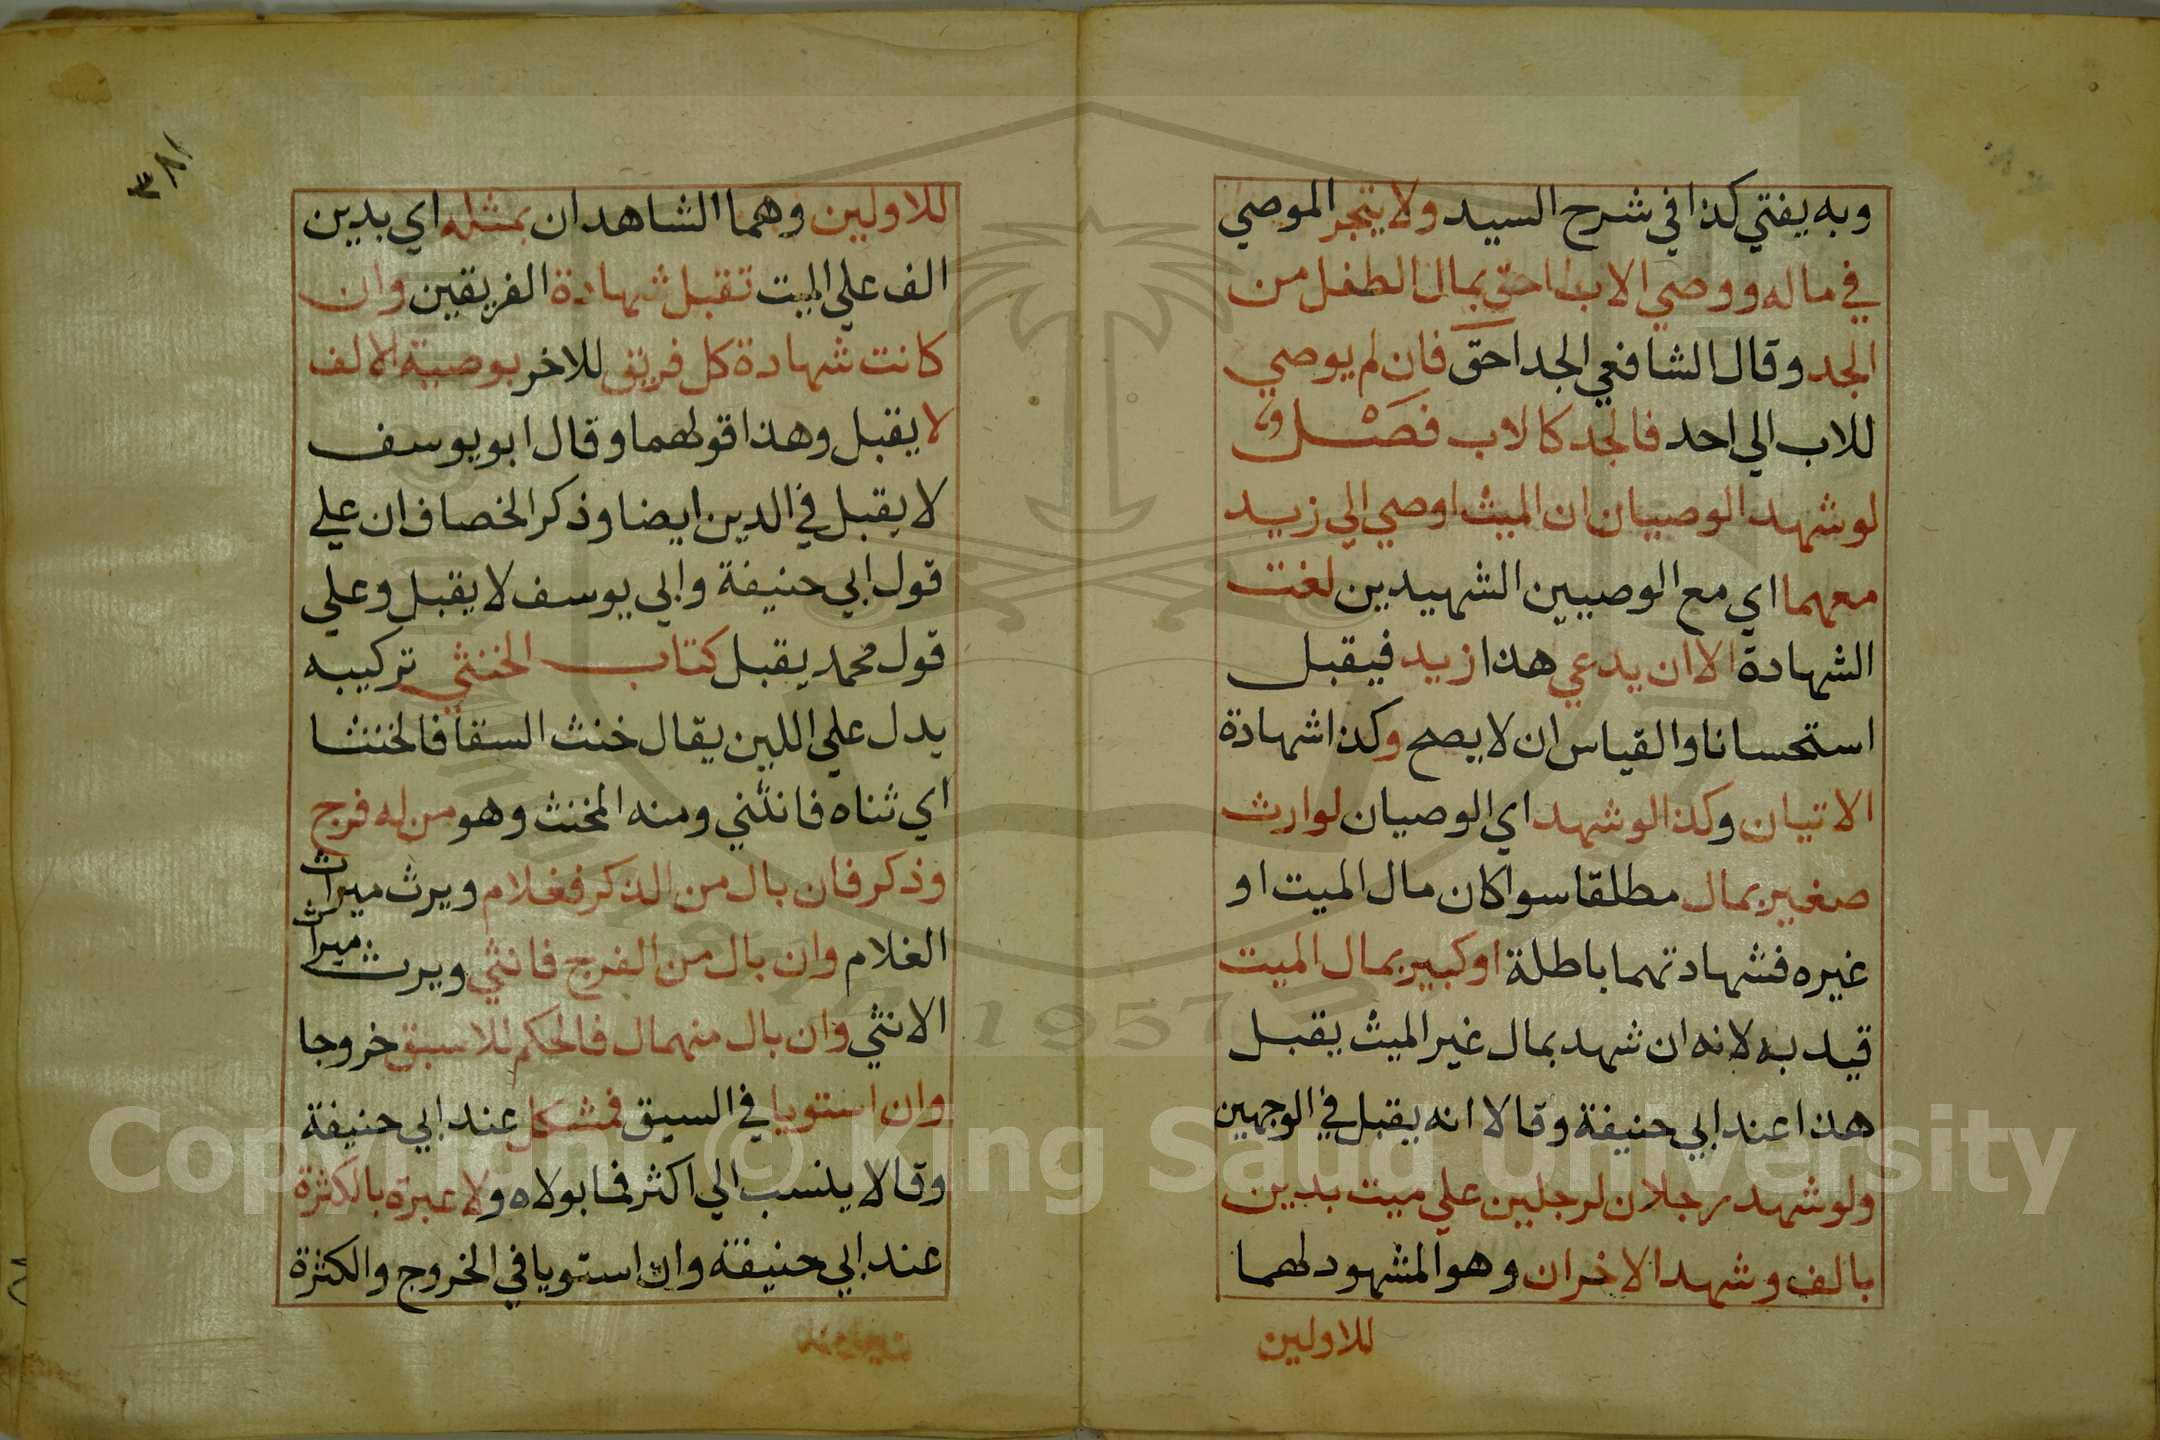 وبه يفتي كذا في شرح السيد ولا يتجر الموصي
في ماله ووصي الاب احق بمال الطفل من
الجد وقال الشافعي الجد احق فان لم يوصي
للاب الي احد فالجد كالاب فصل
لو شهد الوصيان ان الميت اوصي الي زيد
معهما اي مع الوصيين الشهيدين لغت
الشهادة الا ان يدعي هذا زيد فيقبل
استحسانا والقياس ان لا يصح وكذا شهادة
الاتيان وكذا لو شهد اي الوصيان لوارث
صغير بمال مطلقا سوا كان مال الميت او
غيره فشهادتهما باطلة او كبير بمال الميت
قيد به لانه ان شهد بمال غير الميت يقبل
هذا عند ابي حنيفة وقالا انه يقبل في الوجهين
ولو شهد رجلان لرجلين علي ميت بدين
بالف وشهد الاخران وهو المشهود لهما
للاولين
٣٨١
للاولين وهما الشاهدان بمثله اي بدين
الف علي الميت تقبل شهادة الفريقين وان
كانت شهادة كل فريق للاخر بوصية الالف
لا يقبل وهذا قولهما وقال ابو يوسف
لا يقبل في الدين ايضا وذكر الخصاف ان علي
قول ابي حنيفة وابي يوسف لا يقبل وعلي
قول محمد يقبل كتاب الخنثي تركيبه
يدل علي اللين يقال خنث السقا فالخنثا
اي ثناه فانثني ومنه المخنث وهو من له فرج
وذكر فان بال من الذكر فغلام ويرث ميراث
الغلام وان بال من الفرج فانثي ويرث ميراث
الانثي وان بال منهما ل فالحكم للاسبق خروجا
وان استويا في السبق فمشكل عند ابي حنيفة
وقالا ينسب الي اكثرفما بولاه ولا عبرة بالكثرة
عند ابي حنيفة وان استويا في الخروج والكثرة
Copyright © King Saud University
1957